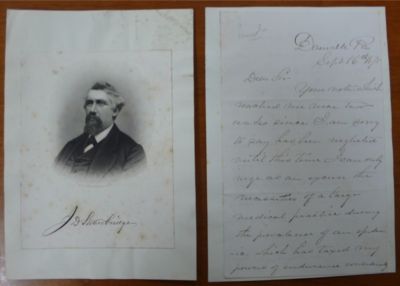 J D Strawbridge
Danville Pa
Sept 16th
Dear Sir
Your note which
reached me some two
weeks since I am sorry
to say has been neglected
until this time I can only
urge as an excuse the
necessities of a large
medical practice during
the prevalence of an epidem-
ic, which has taxed my
powers of endurance